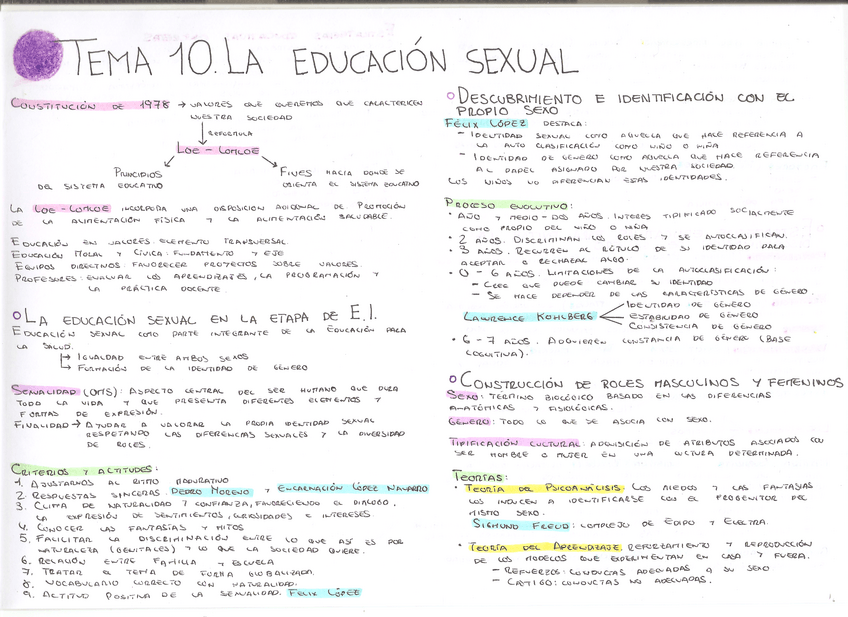 TEMA 10. LA EDUCACIÓN SEXUAL
CONSTITUCIÓN DE 1978 → VALORES QUE QUEREMOS QUE CARACTERICEN
NUESTRA SOCIEDAD
↓ REFORMULA
LOE - LOMLOE
PRINCIPIOS
DEL SISTEMA EDUCATIVO
FINES HACIA DONDE SE
ORIENTA EL SISTEMA EDUCATIVO
LA LOE - LOMLOE INCORPORA UNA DISPOSICIÓN ADICIONAL DE PROMOCIÓN
DE LA ALIMENTACIÓN FÍSICA Y LA ALIMENTACIÓN SALUDABLE.
EDUCACIÓN EN VALORES: ELEMENTO TRANSVERSAL
EDUCACIÓN MORAL Y CÍVICA: FUNDAMENTO Y EJE
EQUIPOS DIRECTIVOS: FAVORECER PROYECTOS SOBRE VALORES
PROFESORES: EVALUAR LOS APRENDIZAJES, LA PROGRAMACIÓN Y
LA PRÁCTICA DOCENTE.
LA EDUCACIÓN SEXUAL EN LA ETAPA DE E.I.
EDUCACIÓN SEXUAL COMO PARTE INTEGRANTE DE LA EDUCACIÓN PARA
LA SALUD.
IGUALDAD ENTRE AMBOS SEXOS
FORMACIÓN DE LA IDENTIDAD DE GÉNERO
SEXUALIDAD (OMS): ASPECTO CENTRAL DEL SER HUMANO QUE DURA
TODA LA VIDA Y QUE PRESENTA DIFERENTES ELEMENTOS Y
FORMAS DE EXPRESIÓN.
FINALIDAD → AYUDAR A VALORAR LA PROPIA IDENTIDAD SEXUAL
RESPETANDO LAS DIFERENCIAS SEXUALES Y LA DIVERSIDAD
DE ROLES.
CRITERIOS Y ACTITUDES:
1. AJUSTARNOS AL RITMO MADURATIVO
2. RESPUESTAS SINCERAS. PEDRO MORENO Y ENCARNACIÓN LÓPEZ NAVARRO
3. CLIMA DE NATURALIDAD Y CONFIANZA, FAVORECIENDO EL DIÁLOGO,
LA EXPRESIÓN DE SENTIMIENTOS, CURIOSIDADES E INTERESES
4. CONOCER LAS FANTASÍAS Y MITOS
5. FACILITAR LA DISCRIMINACIÓN ENTRE LO QUE ASÍ ES POR
NATURALEZA (GENITALES) Y LO QUE LA SOCIEDAD QUIERE.
6. RELACIÓN ENTRE FAMILIA Y ESCUELA
7. TRATAR EL TEMA DE FORMA GLOBALIZADA.
8. VOCABULARIO CORRECTO CON NATURALIDAD.
9. ACTITUD POSITIVA DE LA SEXUALIDAD. FÉLIX LÓPEZ
DESCUBRIMIENTO E IDENTIFICACIÓN CON EL
PROPIO SEXO
FÉLIX LÓPEZ DESTACA:
- IDENTIDAD SEXUAL COMO AQUELLA QUE HACE REFERENCIA A
LA AUTO CLASIFICACIÓN COMO NIÑO O NIÑA
- IDENTIDAD DE GÉNERO COMO AQUELLA QUE HACE REFERENCIA
AL PAPEL ASIGNADO POR NUESTRA SOCIEDAD
LOS NIÑOS NO DIFERENCIAN ESAS IDENTIDADES.
PROCESO EVOLUTIVO:
• AÑO Y MEDIO - DOS AÑOS. INTERÉS TIPIFICADO SOCIALMENTE
COMO PROPIO DEL NIÑO O NIÑA
• 2 AÑOS. DISCRIMINAN LOS ROLES Y SE AUTOCLASIFICAN.
• 3 AÑOS. RECURREN AL RÓTULO DE SU IDENTIDAD PARA
ACEPTAR O RECHAZAR ALGO.
• 0 - 6 AÑOS. LIMITACIONES DE LA AUTOCLASIFICACIÓN:
- CREE QUE PUEDE CAMBIAR SU IDENTIDAD
- SE HACE DEPENDER DE LAS CARACTERÍSTICAS DE GÉNERO.
LAWRENCE KOHLBERG
IDENTIDAD DE GÉNERO
ESTABILIDAD DE GÉNERO
CONSISTENCIA DE GÉNERO
• 6 - 7 AÑOS. ADQUIEREN CONSTANCIA DE GÉNERO (BASE
COGNITIVA).
CONSTRUCCIÓN DE ROLES MASCULINOS Y FEMENINOS
SEXO: TÉRMINO BIOLÓGICO BASADO EN LAS DIFERENCIAS
ANATÓMICAS Y FISIOLÓGICAS.
GÉNERO: TODO LO QUE SE ASOCIA CON SEXO.
TIPIFICACIÓN CULTURAL: ADQUISICIÓN DE ATRIBUTOS ASOCIADOS CON
SER HOMBRE O MUJER EN UNA CULTURA DETERMINADA.
TEORÍAS:
• TEORÍA DEL PSICOANÁLISIS. LOS MIEDOS Y LAS FANTASÍAS
LOS INDUCEN A IDENTIFICARSE CON EL PROGENITOR DEL
MISMO SEXO.
SIGMUND FREUD: COMPLEJO DE EDIPO Y ELECTRA.
• TEORÍA DEL APRENDIZAJE. REFORZAMIENTO Y REPRODUCCIÓN
DE LOS MODELOS QUE EXPERIMENTAN EN CASA Y FUERA.
- REFUERZOS: CONDUCTAS ADECUADAS A SU SEXO
- CASTIGO: CONDUCTAS NO ADECUADAS.